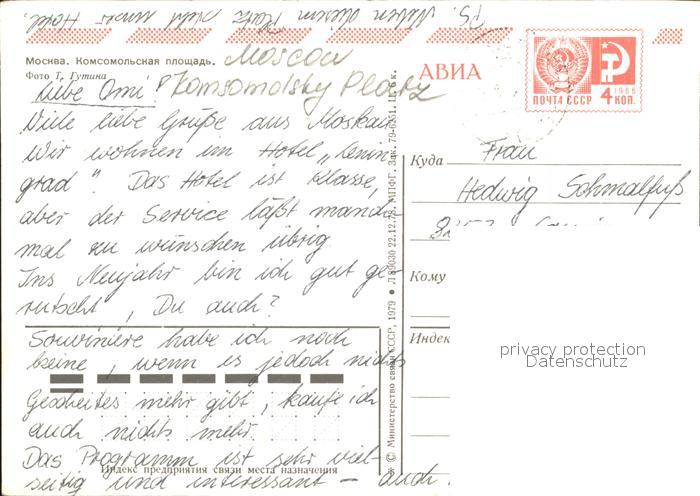 PS. Neben diesem Platz steht unser Hotel.
Москва. Комсомольская площадь.
Фото Т. Гутина
Moscow
Komsomolsky Plostz
АВИА
ПОЧТА СССР
1966
4 КОП.
Liebe Omi!
Viele liebe Grüße aus Moskau
Wir wohnen im Hotel „Lenin-
grad". Das Hotel ist Klasse,
aber der Service läßt manch-
mal zu wünschen übrig
Ins Neujahr bin ich gut ge-
rutscht, Du auch?
Souviniere habe ich noch
keine, wenn es jedoch nichts
Gescheites mehr gibt, kaufe ich
auch nichts mehr.
Das Programm ist sehr viel-
seitig und interessant - auch
Индекс предприятия связи места назначения
© Министерство связи СССР, 1979 • Л 89030 22.12.78. МПФГ. Зак. 79-6551. ц. 6 к.
Куда
Frau
Hedwig Schmalfuß
Кому
Индекс
privacy protection
Datenschutz